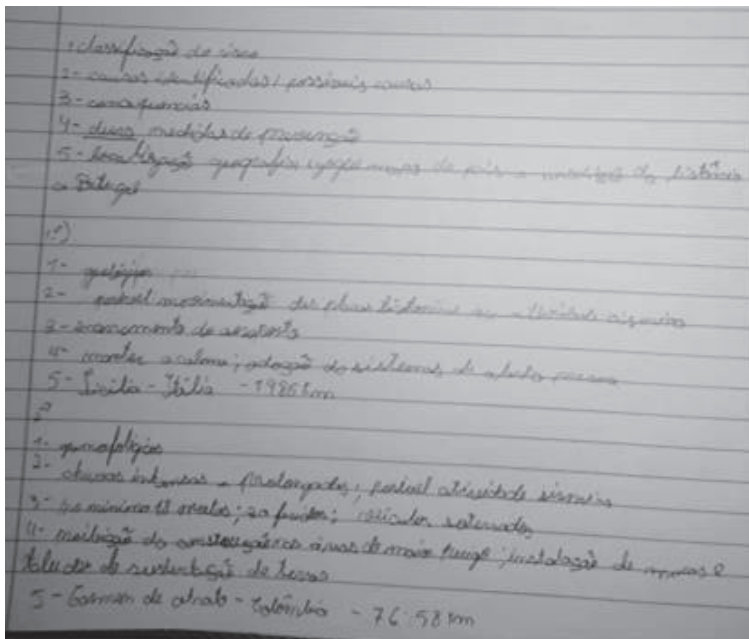 1 classificação do risco
2- causas identificadas / possíveis causas
3- consequências
4- duas medidas de prevenção
5- localização geográfica mapa do país e medição da distância
a Portugal
1º)
1- geológico
2- possível movimentação das placas tectónicas ou
3- encerramento do aeroporto
4- manter a calma; adoção de sistemas de alerta
5- Sicília - Itália - 1986 km
2º
1- geomorfológico
2- chuvas intensas e prolongadas; possível atividade sísmica
3- no mínimo 13 mortos; 20 feridos; veículos soterrados
4- proibição da construção nas áreas de maior perigo; instalação de muros e
taludes de sustentação de terras
5- Carmen de atrato - Colômbia - 7658 km